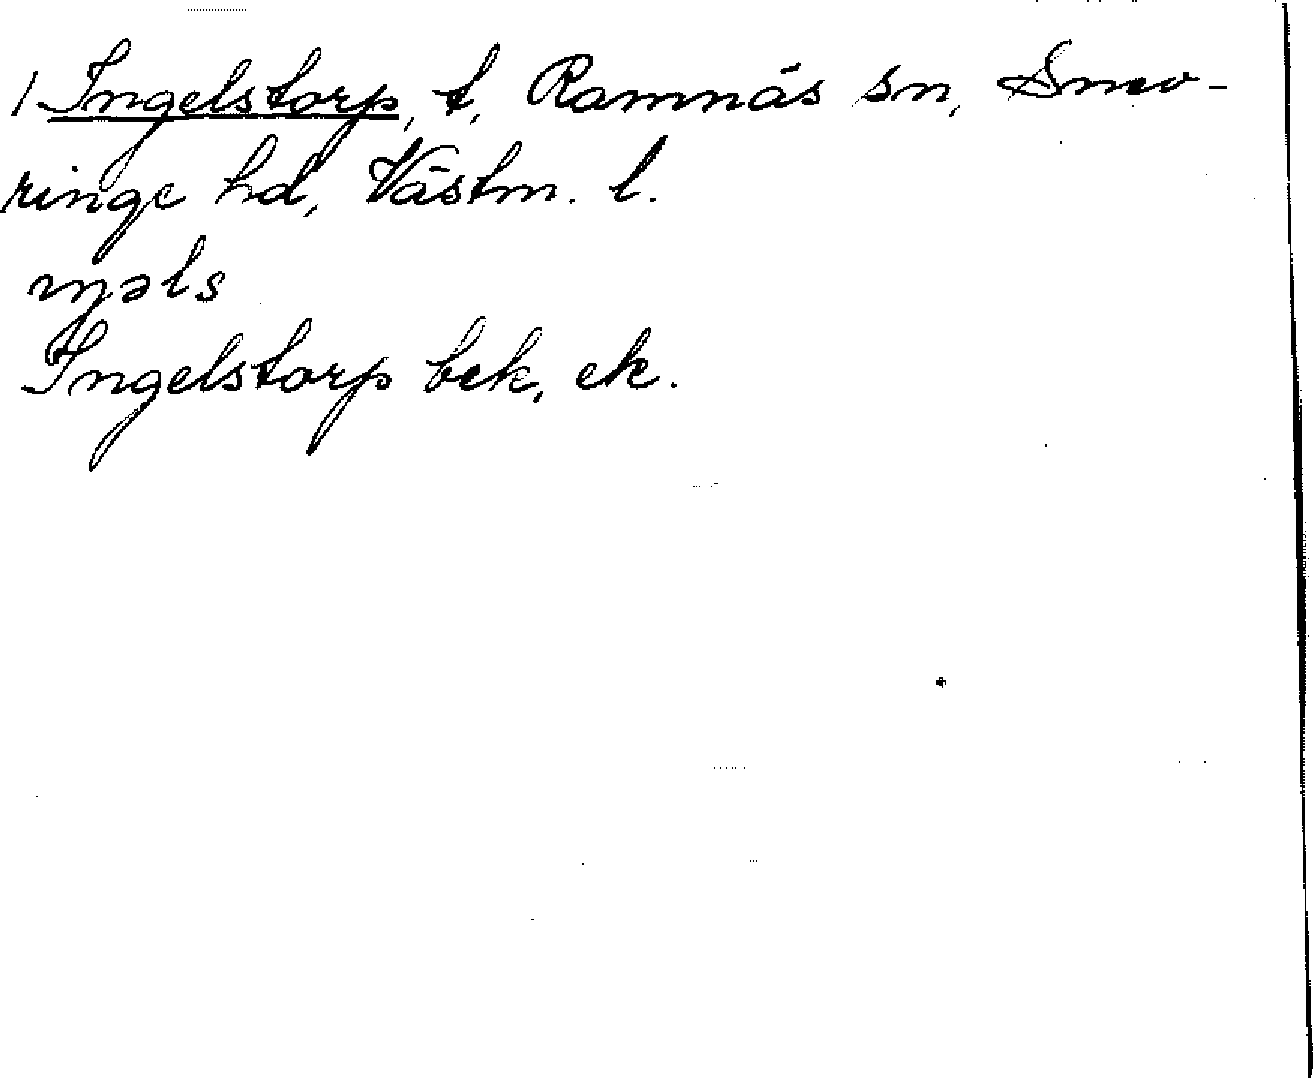 1 Ingelstorp, t, Ramnäs sn, Snev-
ringe hd, Västm. l.
ıŋəls
Ingelstorp bek, ek.